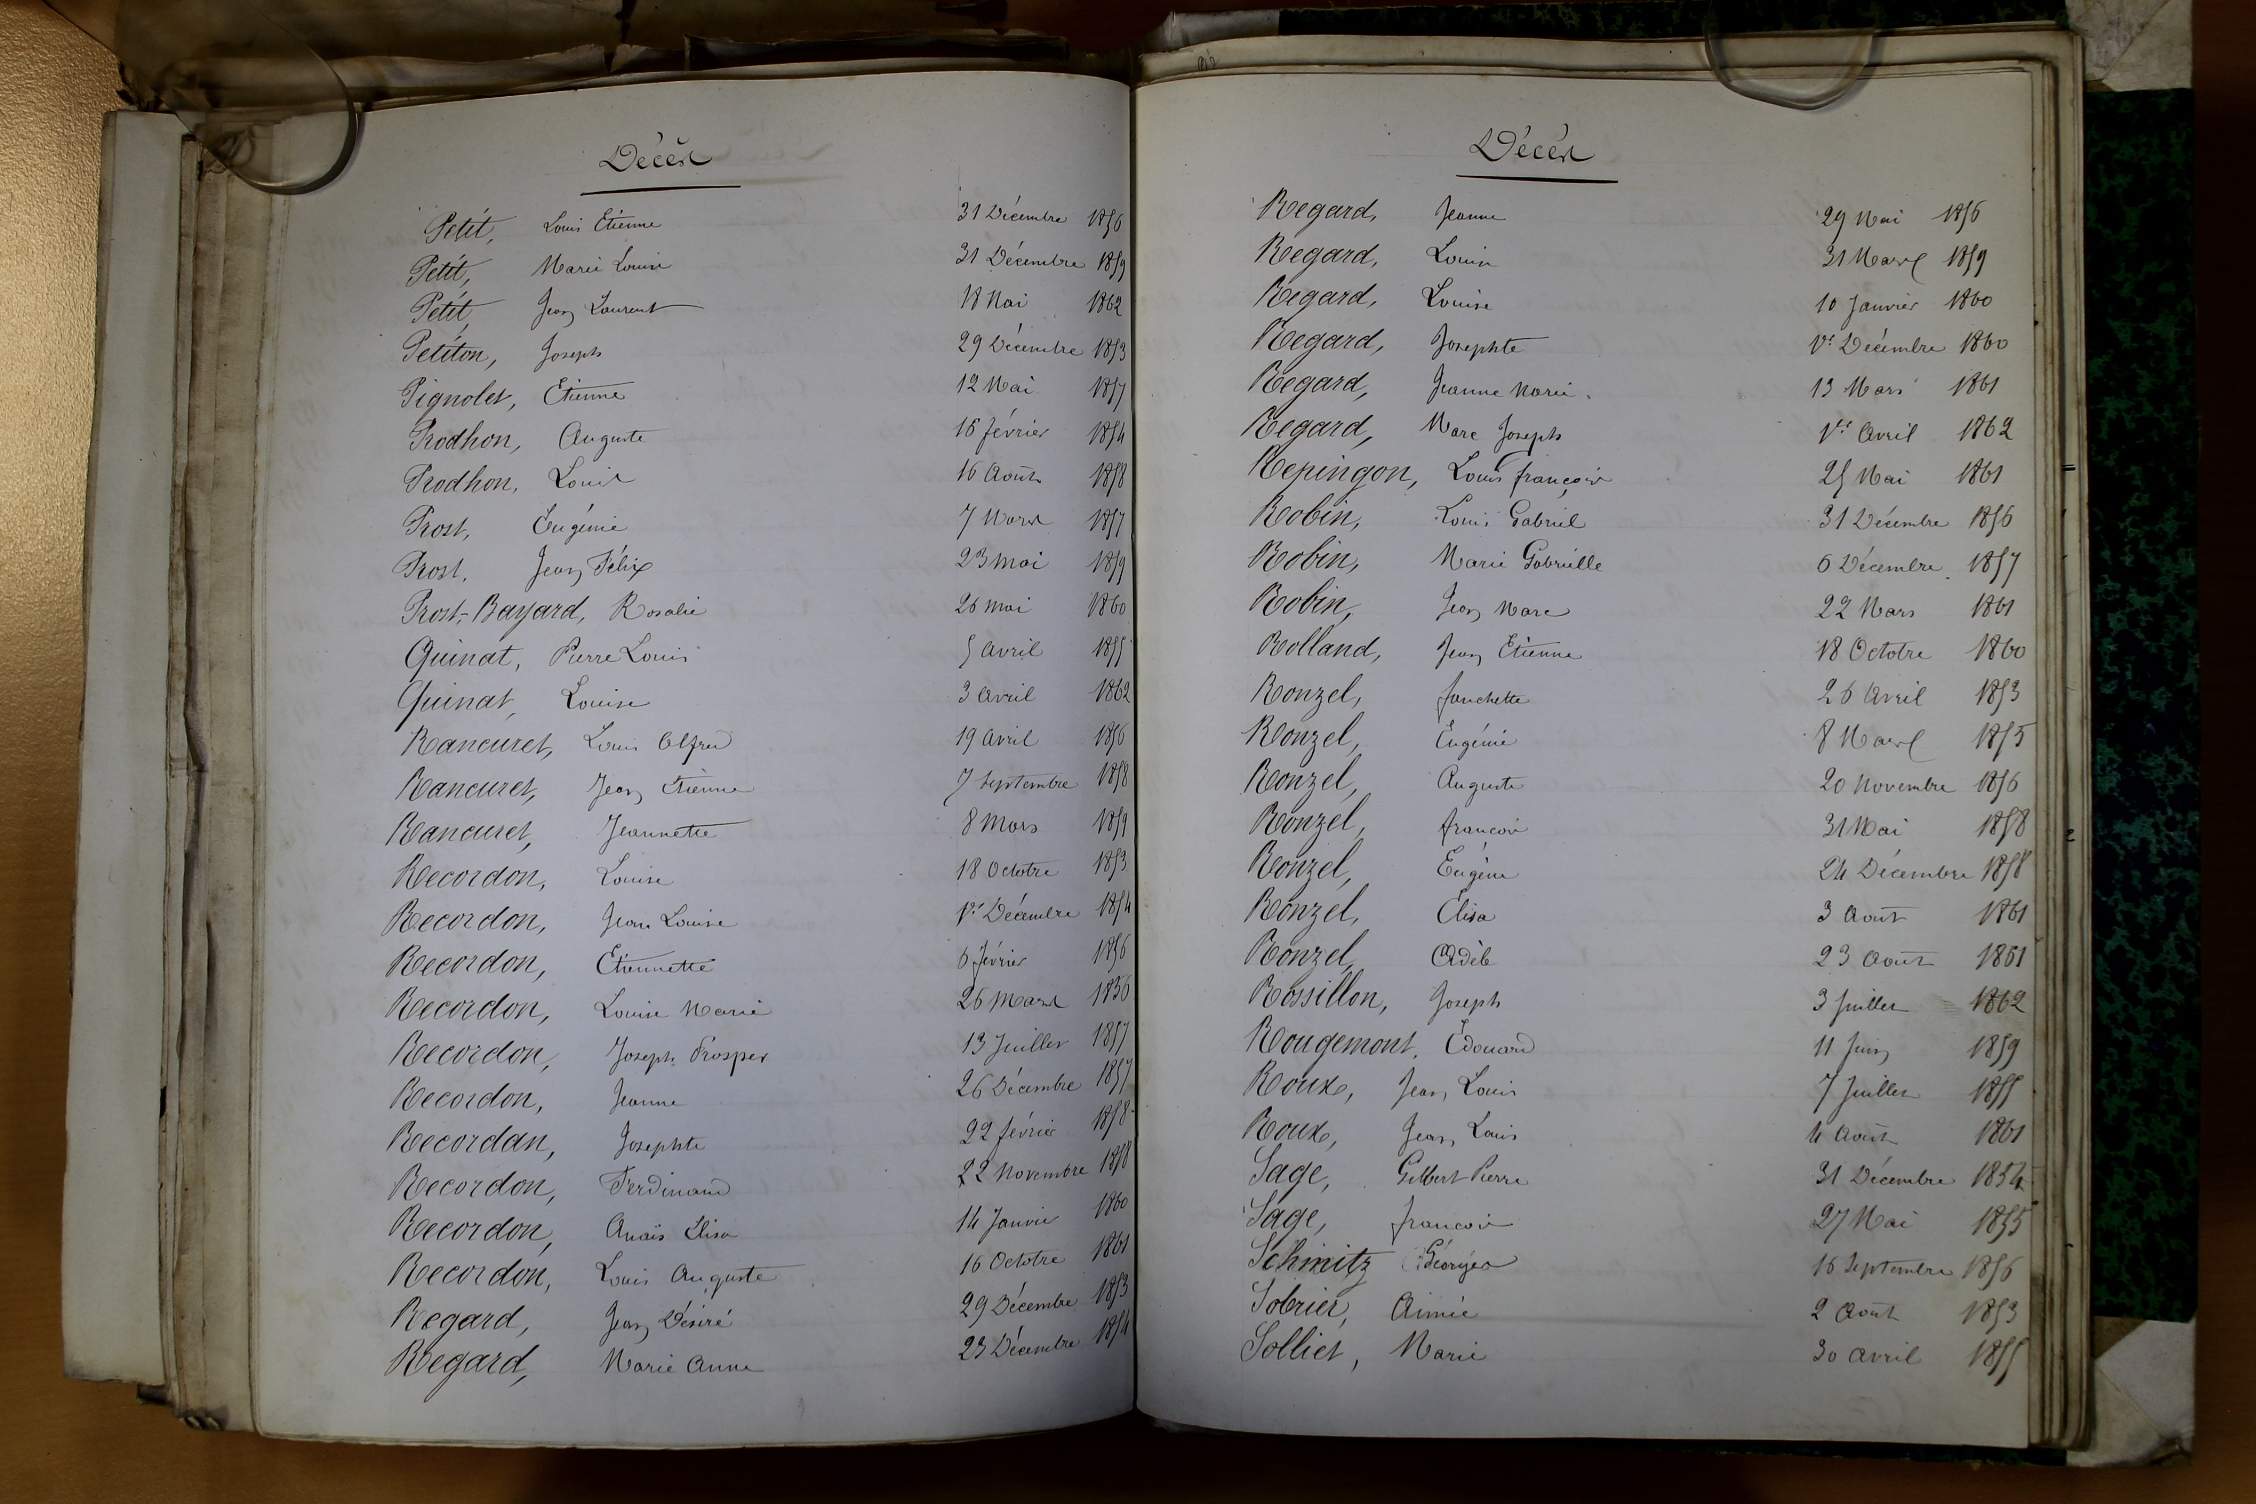 Décès
Petit, Louis Etienne 31 Décembre 1856
Petit, Marie Louise 31 Décembre 1859
Petit, Jean Laurent 18 Mai 1862
Petiton, Joseph 29 Décembre 1853
Pignolet, Etienne 12 Mai 1857
Prodhon, Auguste 16 février 1854
Prodhon, Louis 16 Août 1858
Prost, Eugénie 7 Mars 1857
Prost, Jean Félix 23 mai 1859
Prost-Bayard, Rosalie 26 mai 1860
Quinat, Pierre Louis 5 Avril 1855
Quinat, Louise 3 Avril 1862
Rancuret, Louis Alfred 19 Avril 1856
Rancuret, Jean Etienne 7 Septembre 1858
Rancuret, Jeannette 8 Mars 1859
Recordon, Louise 18 Octobre 1853
Recordon, Jean Louise 1er Décembre 1854
Recordon, Etiennette 6 février 1856
Recordon, Louise Marie 26 Mars 1856
Recordon, Joseph Prosper 13 Juillet 1857
Recordon, Jeanne 26 Décembre 1857
Recordan, Josephte 22 février 1858
Recordon, Ferdinand 22 Novembre 1858
Recordon, Anaïs Elisa 14 Janvier 1860
Recordon, Louis Auguste 16 Octobre 1861
Regard, Jean Désiré 29 Décembre 1853
Regard, Marie Anne 23 Décembre 1854
Décès
Regard, Jeanne 29 Mai 1856
Regard, Louise 31 Mars 1859
Regard, Louise 10 Janvier 1860
Regard, Josephte 1er Décembre 1860
Regard, Jeanne Marie. 13 Mars 1861
Regard, Marc Joseph 1er Avril 1862
Repingon, Louis françois 25 Mai 1861
Robin, Louis Gabriel 31 Décembre 1856
Robin, Marie Gabrielle 6 Décembre 1857
Robin, Jean Marc 22 Mars 1861
Rolland, Jean Etienne 18 Octobre 1860
Ronzel, fanchette 26 Avril 1853
Ronzel, Eugénie 8 Mars 1855
Ronzel, Auguste 20 Novembre 1856
Ronzel, françois 31 Mai 1858
Ronzel, Eugène 24 Décembre 1858
Ronzel, Elisa 3 Août 1861
Ronzel, Adèle 23 Août 1861
Rossillon, Joseph 3 Juillet 1862
Rougemont, Edouard 11 Juin 1859
Roux, Jean Louis 7 Juillet 1855
Roux, Jean Louis 4 Août 1861
Sage, Gilbert Pierre 31 Décembre 1854
Sage, françois 27 Mai 1855
Schmitz Géorges 16 Septembre 1856
Sobrier, Aimée 2 Août 1853
Solliet, Marie 30 Avril 1855